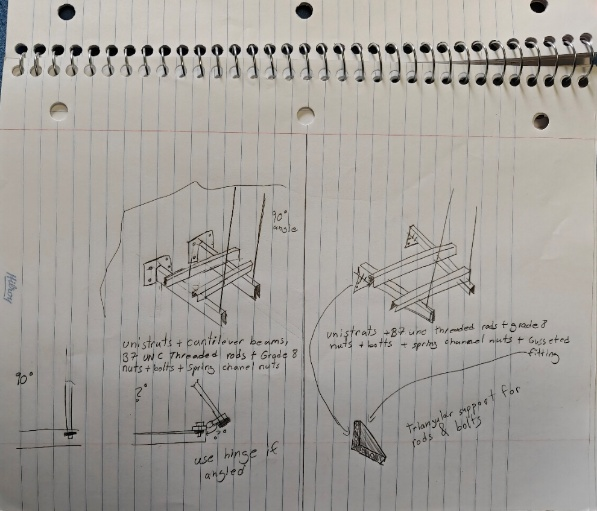 90°
angle
unistrats + cantilever beams,
B7 UNC threaded rods + Grade 8
nuts + bolts + spring chanel nuts
90°
?°
? °
use hinge if
angled
unistrats + B7 unc threaded rods + grade 8
nuts + botts + spring channel nuts + Gusseted
fitting
Triangular support for
rods & bolts
Hilroy